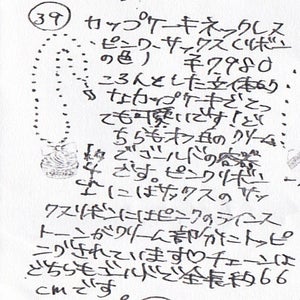 39 カップケーキネックレス
ピンク・サックス(リボン
の色) 各7980
ころんとした立体的
なカップケーキでとっ
ても可愛いです!ど
ちらもオフ白のクリーム
でゴールドの
です。ピンクリボン
にはサックスの
クスリボンにはピンクのラインス
トーンがクリーム部分にトッピ
ングされています♡チェーンは
どちらもゴールドで全長約66
cmです